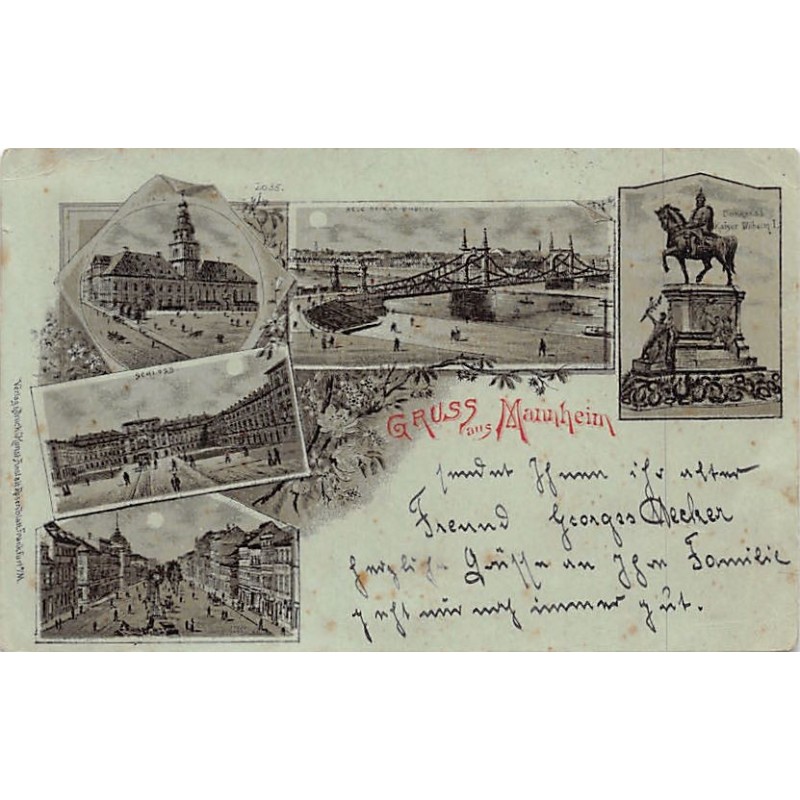 2055.
Denkmal
Kaiser Wilhelm I.
SCHLOSS
GRUSS aus Mannheim
sendet Ihnen ihr alter
Freund Georges Necker
herzliche Grüsse an Ihre Familie
geht mir noch immer gut.